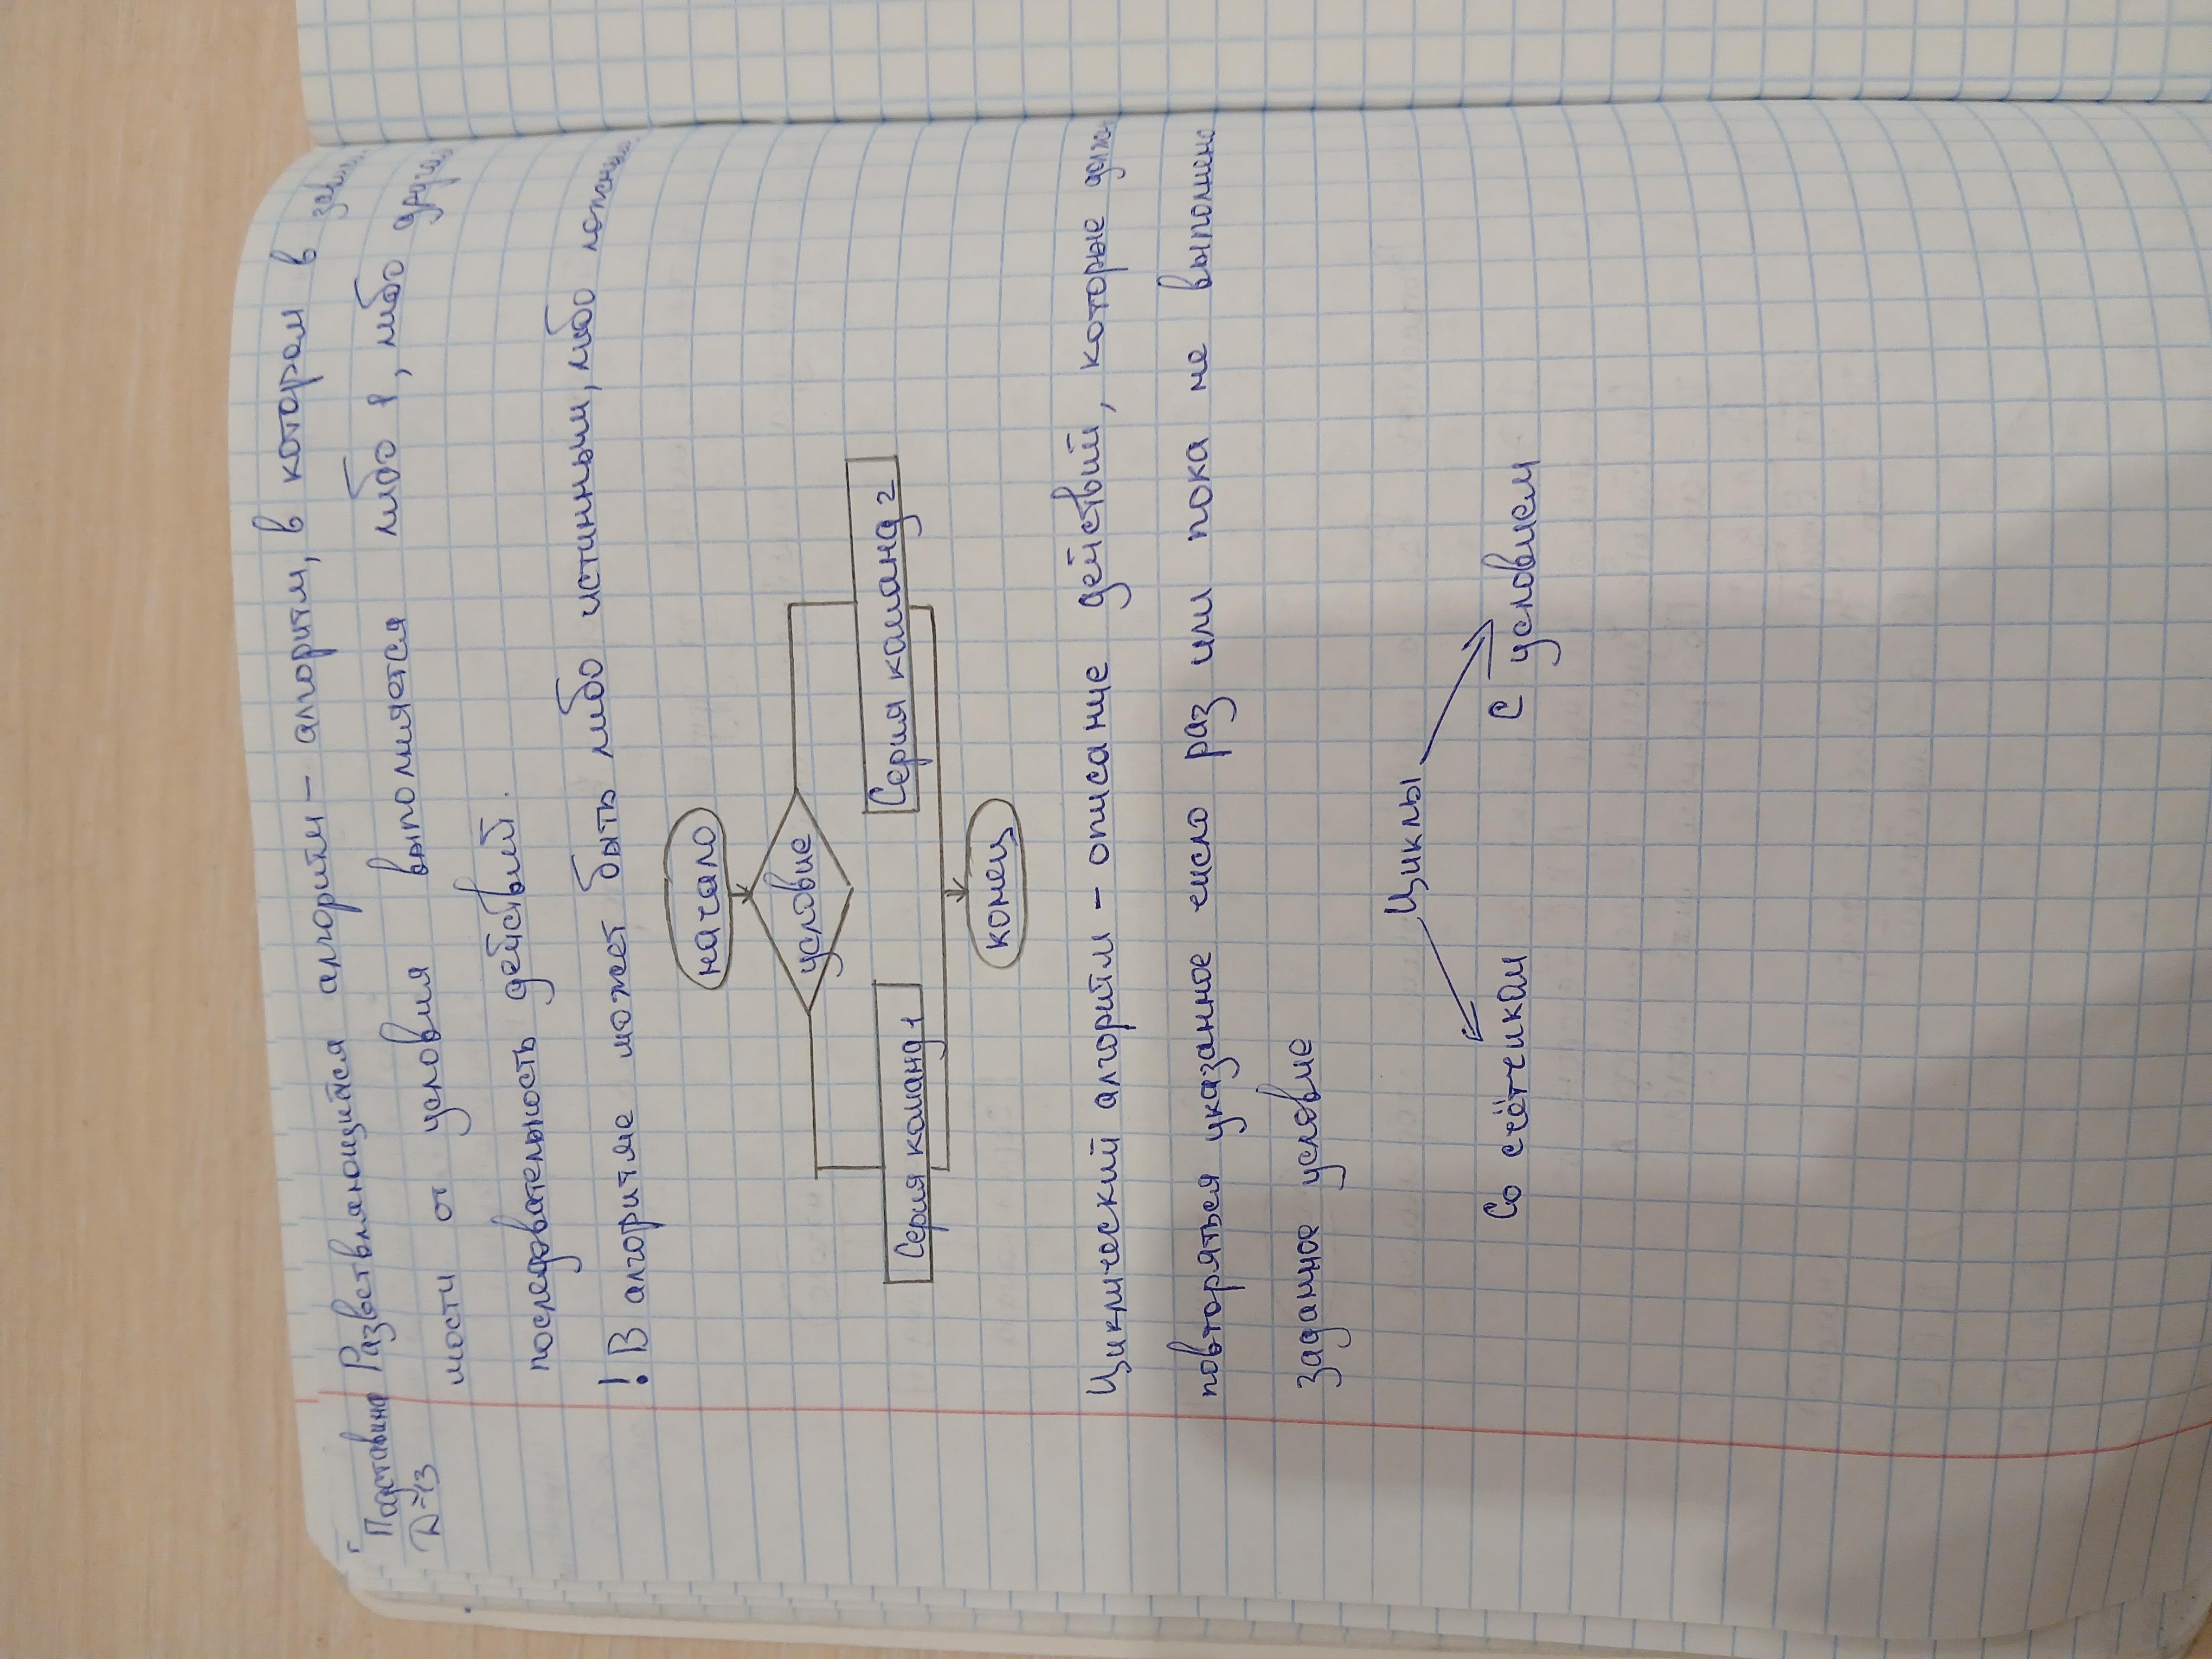 Разветвляющийся алгоритм – алгоритм, в котором в зави
мости от условия выполняется либо 1, либо
последовательность действий.
! В алгоритме может быть либо истинным, либо ложным
начало
условие
Серия команд 1
Серия команд 2
конец
Циклический алгоритм – описание действий, которые долж
повторяться указанное число раз или пока не выполнено
заданное условие
Циклы
Со счётчиком
С условием